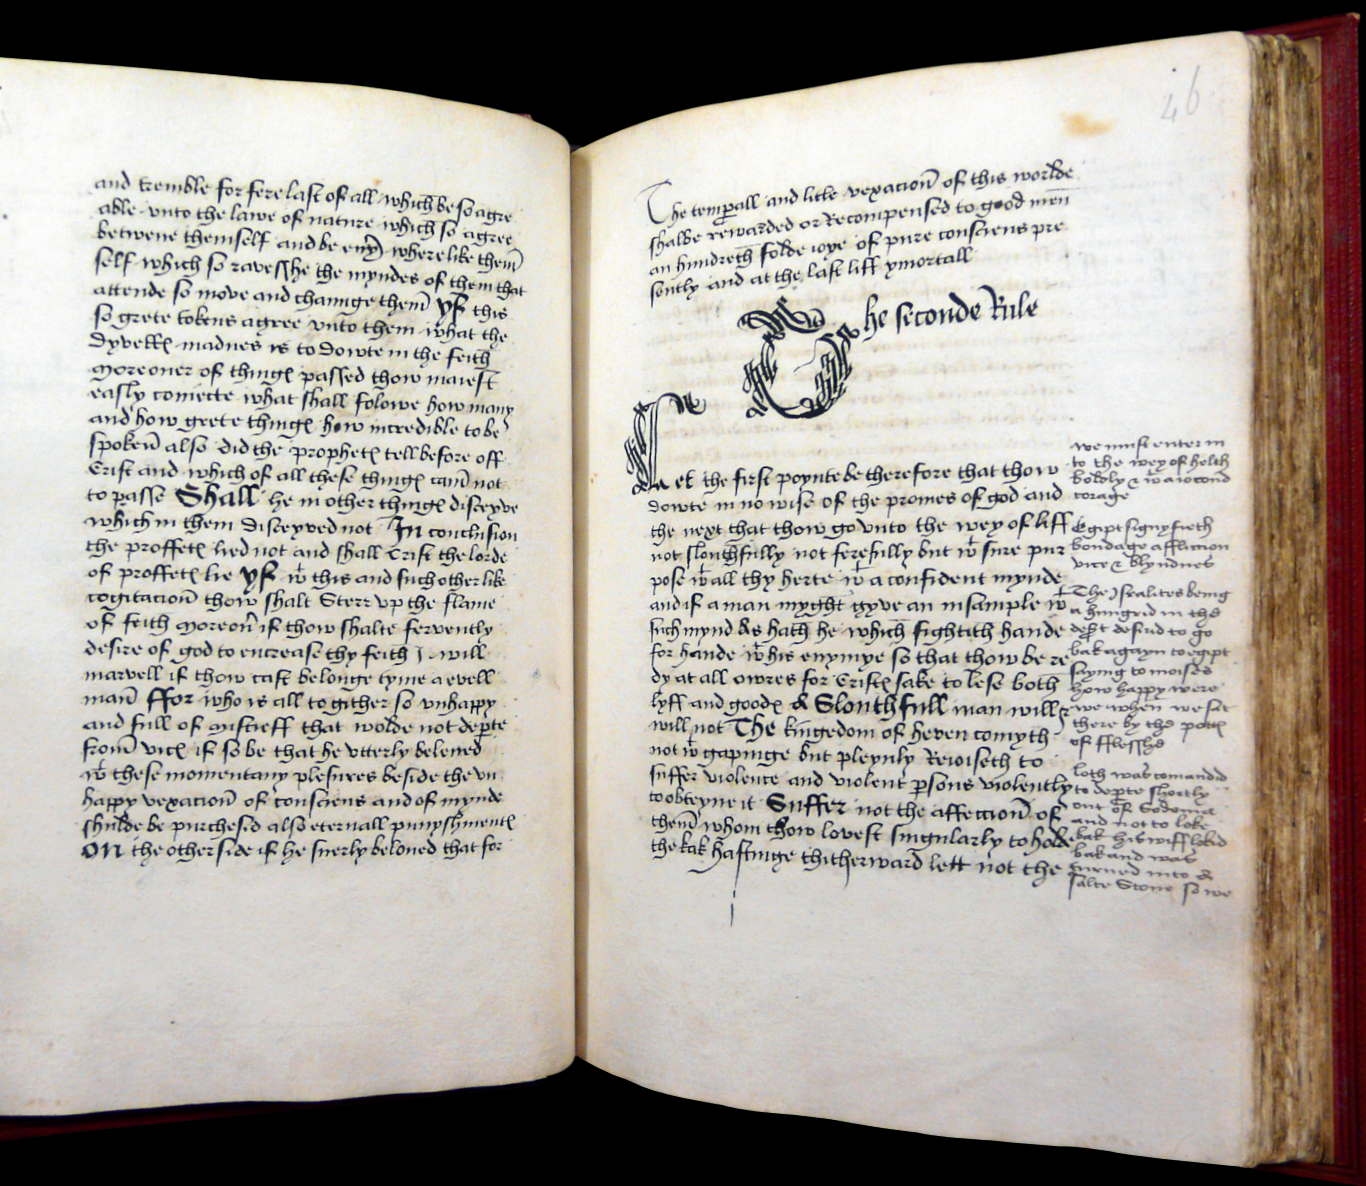 and tremble for fere last of all which be so agre
able vnto the lawe of nature which so agree
betwene themself and be euery where like them
self which so ravesshe the myndes of them that
attende so move and chaunge them yf this
so grete tokens agree vnto them what the
dyvellis madnes is to dowte in the feith
moreouer of thingis passed thow maiest
easly coniecte what shall folowe how many
and how grete thingis how incredible to be
spoken also did the prophetis tell before off
Crist and which of all these thingis cam not
to passe Shall he in other thingis disceyve
which in them disceyved not In conclusion
the proffetis lied not and shall Crist the lorde
of proffetis lie yf wt this and such other like
cogitacion thow shalt Sterr vp the flame
of feith moreour if thow shalte fervently
desire of god to encrease thy feith I will
marvell if thow cast be longe tyme a evell
man ffor who is all togither so vnhappy
and full of mischeff that wolde not deperte
from vicis if so be that he vtterly beleued
wt these momentany plesures beside the vn
happy vexacion of consciens and of mynde
shulde be purchesid also eternall punyshmentis
On the other side if he suerly beloued that for
46
The temperall and litle vexacion of this worlde
shalbe rewarded or Recompensed to good men
an hundreth folde ioye of pure consciens pre
sently and at the last liff ymortall
The seconde Rule
Let the first poynte be therefore that thow
dowte in no wise of the promes of god and
the next that thow go vnto the wey of liff
not slouthfully not ferefully but wt sure pur
pose wt all thy herte wt a confident mynde
and if a man myght gyve an insample wt
such mynd As hath he which fightith hande
for hande wt his enymye so that thow be re
dy at all owres for Cristis sake to lese both
lyff and goodis A Slouthfull man will &
will not The kingedom of heven comyth
not wt gapinge but pleynly Reioiseth to
suffer violence and violent persons violently
to obteyne it Suffer not the affeccion of
them whom thow lovest singularly to holde
the bak hastinge thitherward lett not the
we must enter in
to the wey of helth
boldly & wt a iocond
corage
Egipt signyfieth
bondage affliction
vice & blyndnes
The Israelites being
a hungrid in the
desert desird to go
bak agayn to egipt
saying to moises
how happy were
we when we sit
there by the pottis
of fflesshe
loth was comandid
to deperte shortly
out of Sodoma
and not to loke
bak his wiff lokid
bak and was
turned into A
salte Stone so we